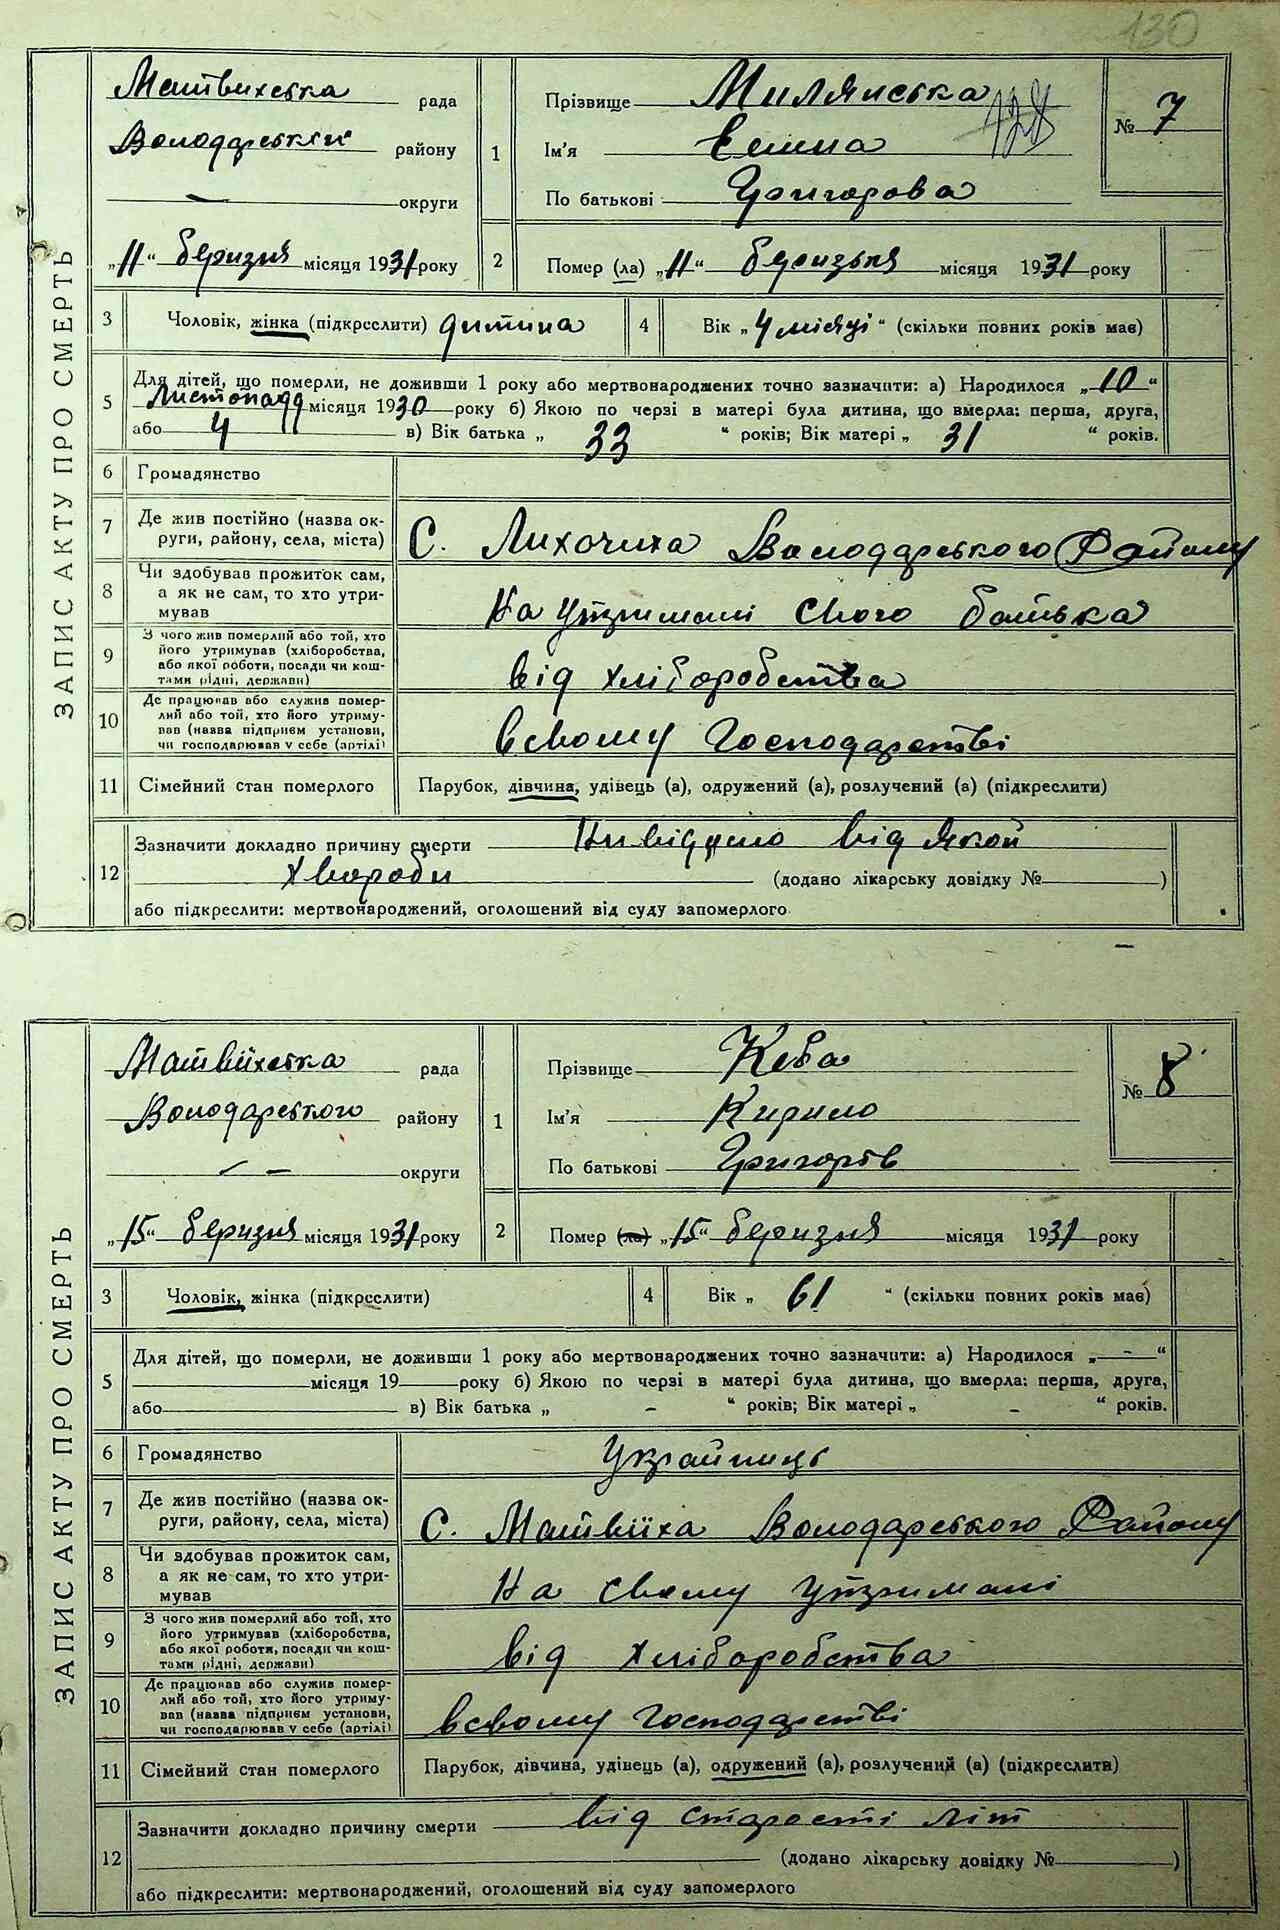 130
ЗАПИС АКТУ ПРО СМЕРТЬ
Матвихська рада
Володарський району
— округи
„11“ березня місяця 1931 року
1
Прізвище Милянська
Ім'я Елина
По батькові Григорова
№ 7
2 Помер (ла) „11“ березьня місяця 1931 року
3 Чоловік, жінка (підкреслити) дитина
4 Вік „4 місяці“ (скільки повних років має)
5 Для дітей, що померли, не доживши 1 року або мертвонароджених точно зазначити: а) Народилося „10“
Листопада місяця 1930 року б) Якою по черзі в матері була дитина, що вмерла: перша, друга,
або 4 в) Вік батька „ 33 “ років; Вік матері „ 31 “ років.
6 Громадянство
7 Де жив постійно (назва ок-
руги, району, села, міста)
С. Лихочиха Володарського Району
8 Чи здобував прожиток сам,
а як не сам, то хто утри-
мував
На утримані свого батька
9 З чого жив померлий або той, хто
його утримував (хліборобства,
або якої роботи, посади чи кош-
тами рідні, держави)
від хліборобства
10 Де працював або служив помер-
лий або той, хто його утриму-
вав (назва підприєм установи,
чи господарював у себе (артілі)
всвому Господарстві
11 Сімейний стан померлого
Парубок, дівчина, удівець (а), одружений (а), розлучений (а) (підкреслити)
12 Зазначити докладно причину смерти Нивідомо від якой
хвороби (додано лікарську довідку № )
або підкреслити: мертвонароджений, оголошений від суду запомерлого
ЗАПИС АКТУ ПРО СМЕРТЬ
Матвіїхська рада
Володарського району
— — округи
„15“ березня місяця 1931 року
1
Прізвище Кеба
Ім'я Кирило
По батькові Григорів
№ 8
2 Помер (ла) „15“ березня місяця 1931 року
3 Чоловік, жінка (підкреслити)
4 Вік „ 61 “ (скільки повних років має)
5 Для дітей, що померли, не доживши 1 року або мертвонароджених точно зазначити: а) Народилося „ - “
місяця 19 року б) Якою по черзі в матері була дитина, що вмерла: перша, друга,
або в) Вік батька „ - “ років; Вік матері „ - “ років.
6 Громадянство
Украйниць
7 Де жив постійно (назва ок-
руги, району, села, міста)
С. Матвіїха Володарського Району
8 Чи здобував прожиток сам,
а як не сам, то хто утри-
мував
На свому утримані
9 З чого жив померлий або той, хто
його утримував (хліборобства,
або якої роботи, посади чи кош-
тами рідні, держави)
від хліборобства
10 Де працював або служив помер-
лий або той, хто його утриму-
вав (назва підприєм установи,
чи господарював у себе (артілі)
всвому господарстві
11 Сімейний стан померлого
Парубок, дівчина, удівець (а), одружений (а), розлучений (а) (підкреслити)
12 Зазначити докладно причину смерти від старості літ
(додано лікарську довідку № )
або підкреслити: мертвонароджений, оголошений від суду запомерлого